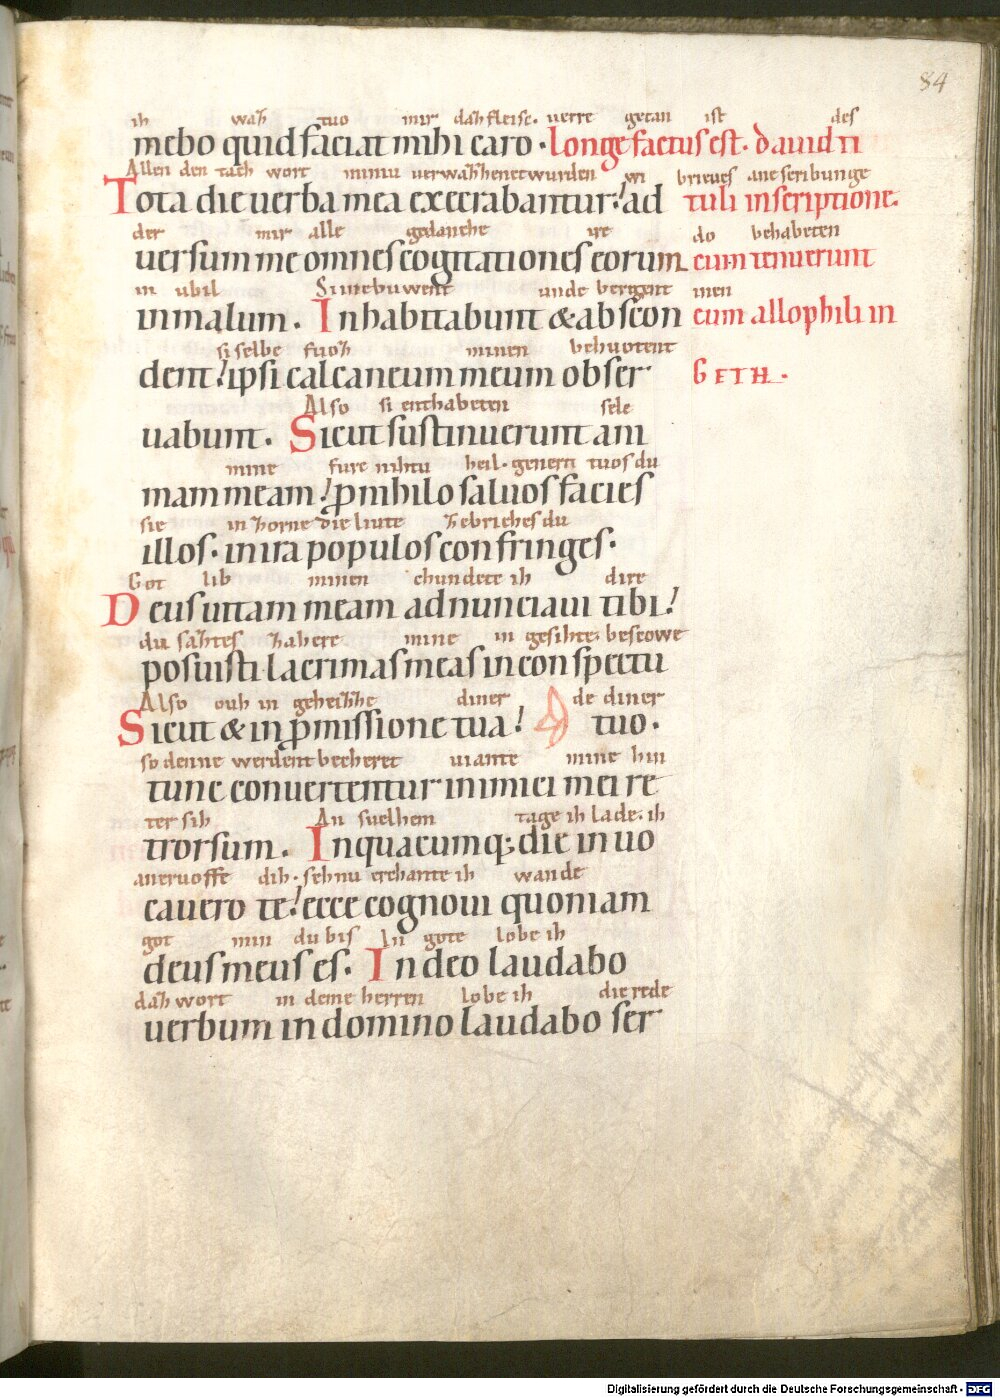 84
ih waħ tuo mir daħ fleisc. uerre getan ist des
mebo quid faciat mihi caro · longe factus est. dauid ti
Allen den tach wort miniu uerwaħħenet wurden wi brieues anescribunge
Tota die uerba mea execrabantur: ad tuli inscriptione.
der mir alle gedanche ire do behabeten
uersum me omnes cogitationes eorum cum tenuerunt
in ubil Si inebuwent unde bergent inen
in malum. Inhabitabunt & abscon eum allophili in
si selbe fuoħ minen behuotent
dent! ipsi calcaneum meum obser GETH.
Also si enthabeten sele
uabunt. Sicut sustinuerunt ani
mine fure nihtu heil. generis tuos du
mam meam! ꝓ nihilo saluos facies
sie in ħorne die liute ħebriches du
illos. in ira populos confringes.
Got lib minen chundete ih dire
Deus uitam meam adnunciaui tibi!
du saħtes ħahere mine in gesihte. bescowe
posuisti lacrimas meas in conspectu
Also ouh in geheiħħe diner de diner
Sicut & in ꝓmissione tua! tuo.
so denne werdent becheret uiante mine hin
tunc conuertentur inimici mei re
ter sih An suelhem tage ih lade. ih
trorsum. In quacumq; die inuo
aneruoffe dih. sehnu erchante ih wande
cauero te! ecce cognoui quoniam
got min du bis In gote lobe ih
deus meus es. In deo laudabo
daħ wort in deme herren lobe ih die rede
uerbum in domino laudabo ser
Digitalisierung gefördert durch die Deutsche Forschungsgemeinschaft - DFG